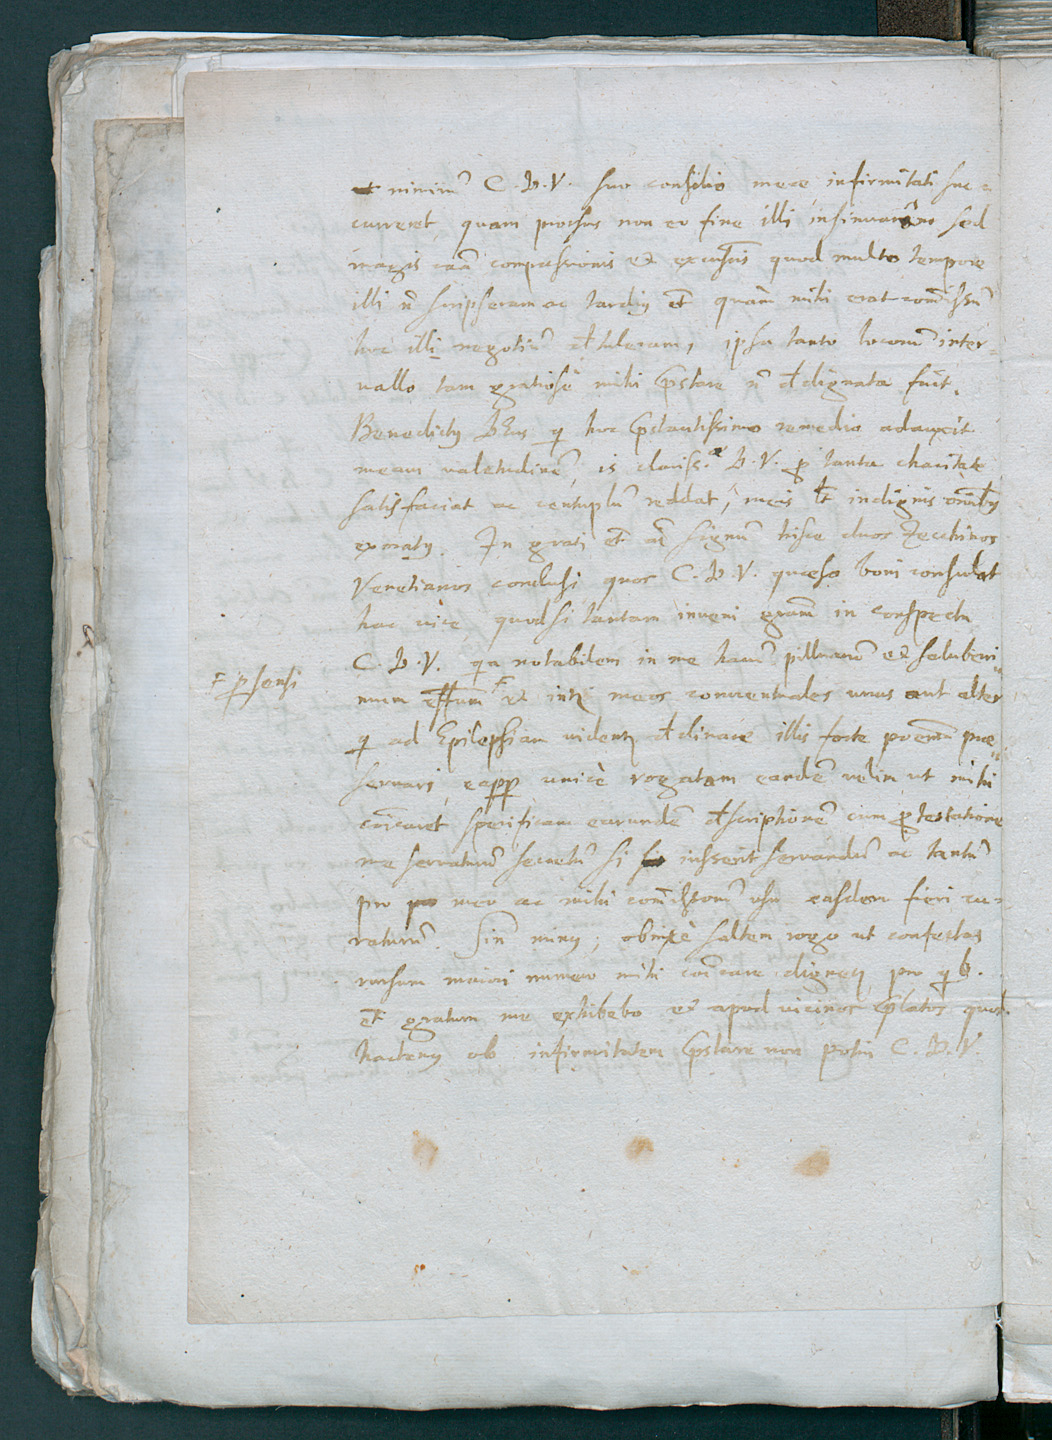 nimirū C. D. V. suo consilio meae infirmitati suc=
curreret, quam prorsus non eo fine illi insinuarā sed
magis cāā compassionis et excusōis quod multo tempore
illi ñ scripseram ac tardiꝰ et̄ quàm mihi erat com̄issū
hoc illi negotiū detuleram, ipsa tanto locorū inter=
uallo tam gratiosè mihi p̄stare ñ dedignata fuit.
Benedictꝰ Deus qi hoc p̄stantissimo remedio adauxit
meam valetudinē, is clariss.ae D. V. ꝓ tanta charitate
satisfaciat ac centuplū reddat, meis et indignis
exoratꝰ. In grati et ai signū hisce duos Zecchinos
Venetianos conclusi quos C. D. V. quaeso boni consulat
hac vice, quod si tantam inueni gram̄ in conspectu
C. D. V. qa notabilem in me harū pillularū et saluberri=
mum eff̄tum F et int̄ meos conuentuales unus aut alter
F ꝑsensi
qi ad Epilepsiam videntꝰ declinare illis forte poterūt prae=
seruari, eapp̄ unicè rogatam eandē velim ut mihi
coīcaret specificam earundē descriptionē cum ꝓtestatione
me seruaturū secretū si iusserit seruandū ac tantū
pro meo ac mihi com̄issorū usu easdem fieri cu=
raturū. Sin̄ minꝰ, obnixè saltem rogo ut confectas
rursum maiori numero mihi coīcare dignetꝰ, pro qb.
et̄ gratum me exhibebo et apud vicinos p̄latos quod
hactenꝰ ob infirmitatem p̄stare non potui C. D. V.